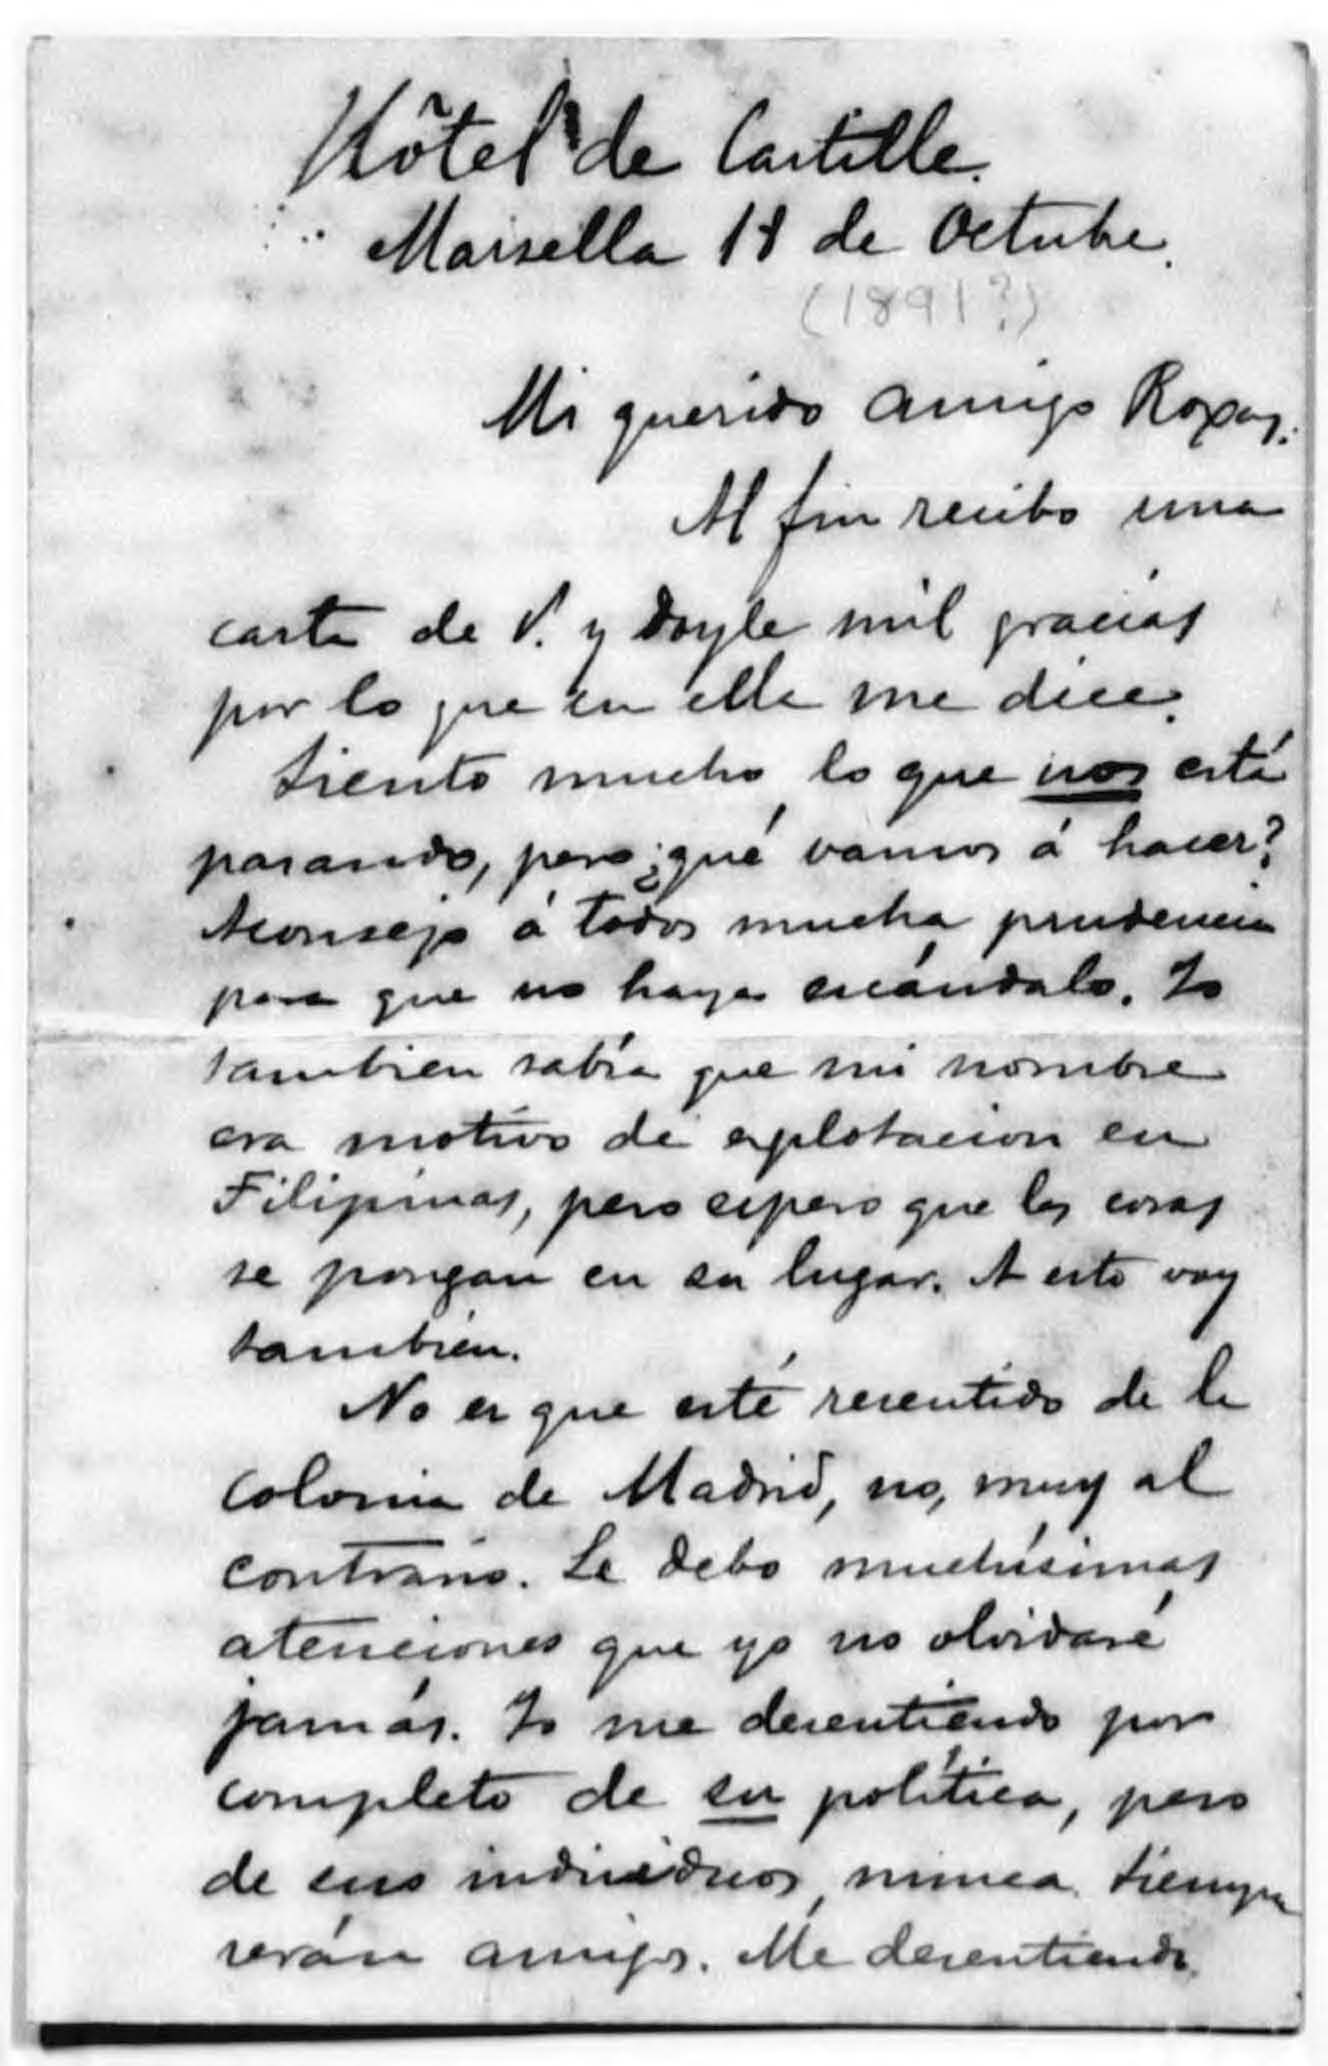 Hôtel de Castille.
Marsella 18 de Octubre.
(1891?)
Mi querido amigo Roxas:
Al fin recibo una
carta de V. y doyle mil gracias
por lo que en ella me dice.
Siento mucho lo que nos está
pasando, pero ¿qué vamos á hacer?
Aconsejo á todos mucha prudencia
para que no haya escándalo. Yo
tambien sabía que mi nombre
era motivo de esplotacion en
Filipinas, pero espero que las cosas
se pongan en su lugar. A esto voy
tambien.
No es que esté resentido de la
colonia de Madrid, no, muy al
contrario. Le debo muchísimas
atenciones que yo no olvidaré
jamás. Yo me desentiendo por
completo de su política, pero
de sus individuos, nunca. Siempre
serán amigos. Me desentiendo